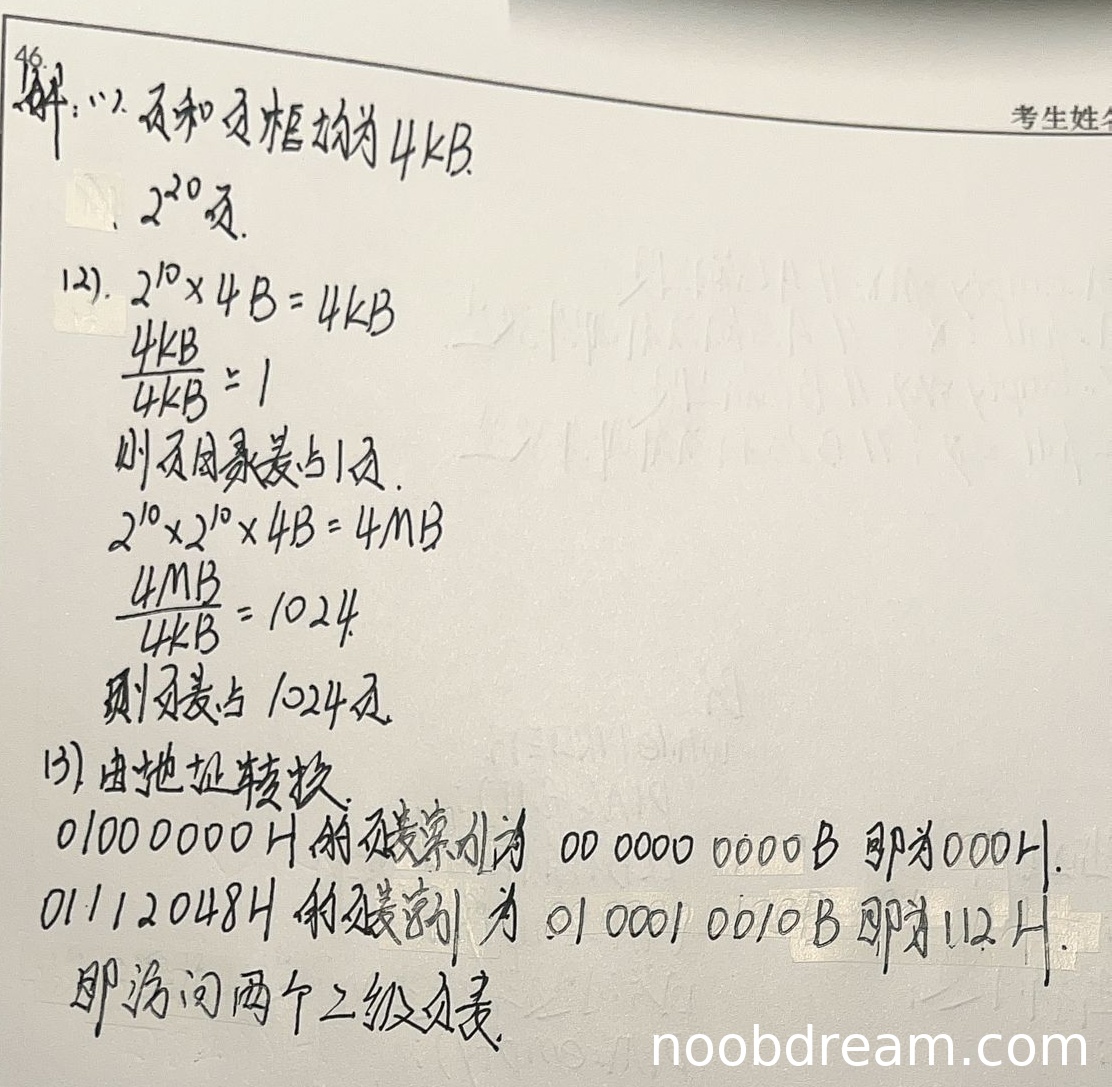 46.
考生姓名
解:(1). 页和页框均为4KB.
2²⁰页.
(2). 2¹⁰×4B=4KB
4KB/4KB=1
则页目录表占1页.
2¹⁰×2¹⁰×4B=4MB
4MB/4KB=1024.
则页表占1024页.
(3). 由地址转换.
01000000H的页表索引为 00 0000 0000B 即为000H.
01112048H的页表索引为 01 0001 0010B 即为112H.
即访问两个二级页表.
noobdream.com